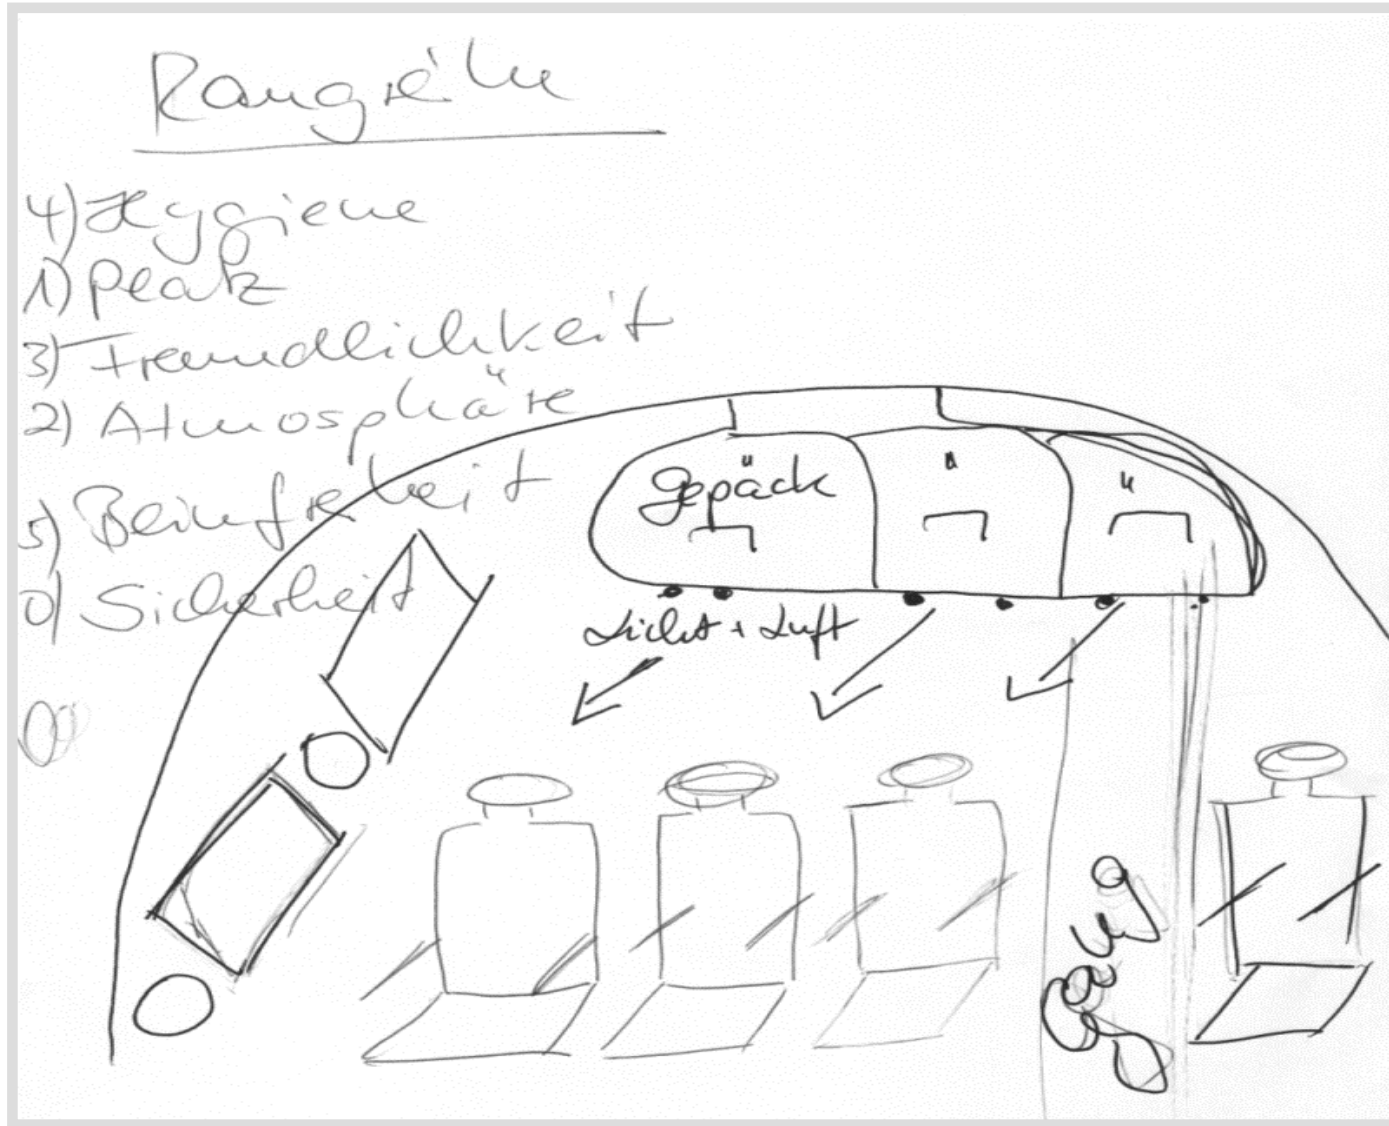 Rangreihe
4) Hygiene
1) Platz
3) Freundlichkeit
2) Atmosphäre
5) Beinfreiheit
0) Sicherheit
Gepäck
"
"
Licht + Luft
Gang